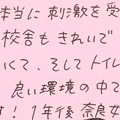 本当に刺激を受
校舎もきれいで
いくて、そしてトイレ
良い環境の中で
す！1年後奈良女